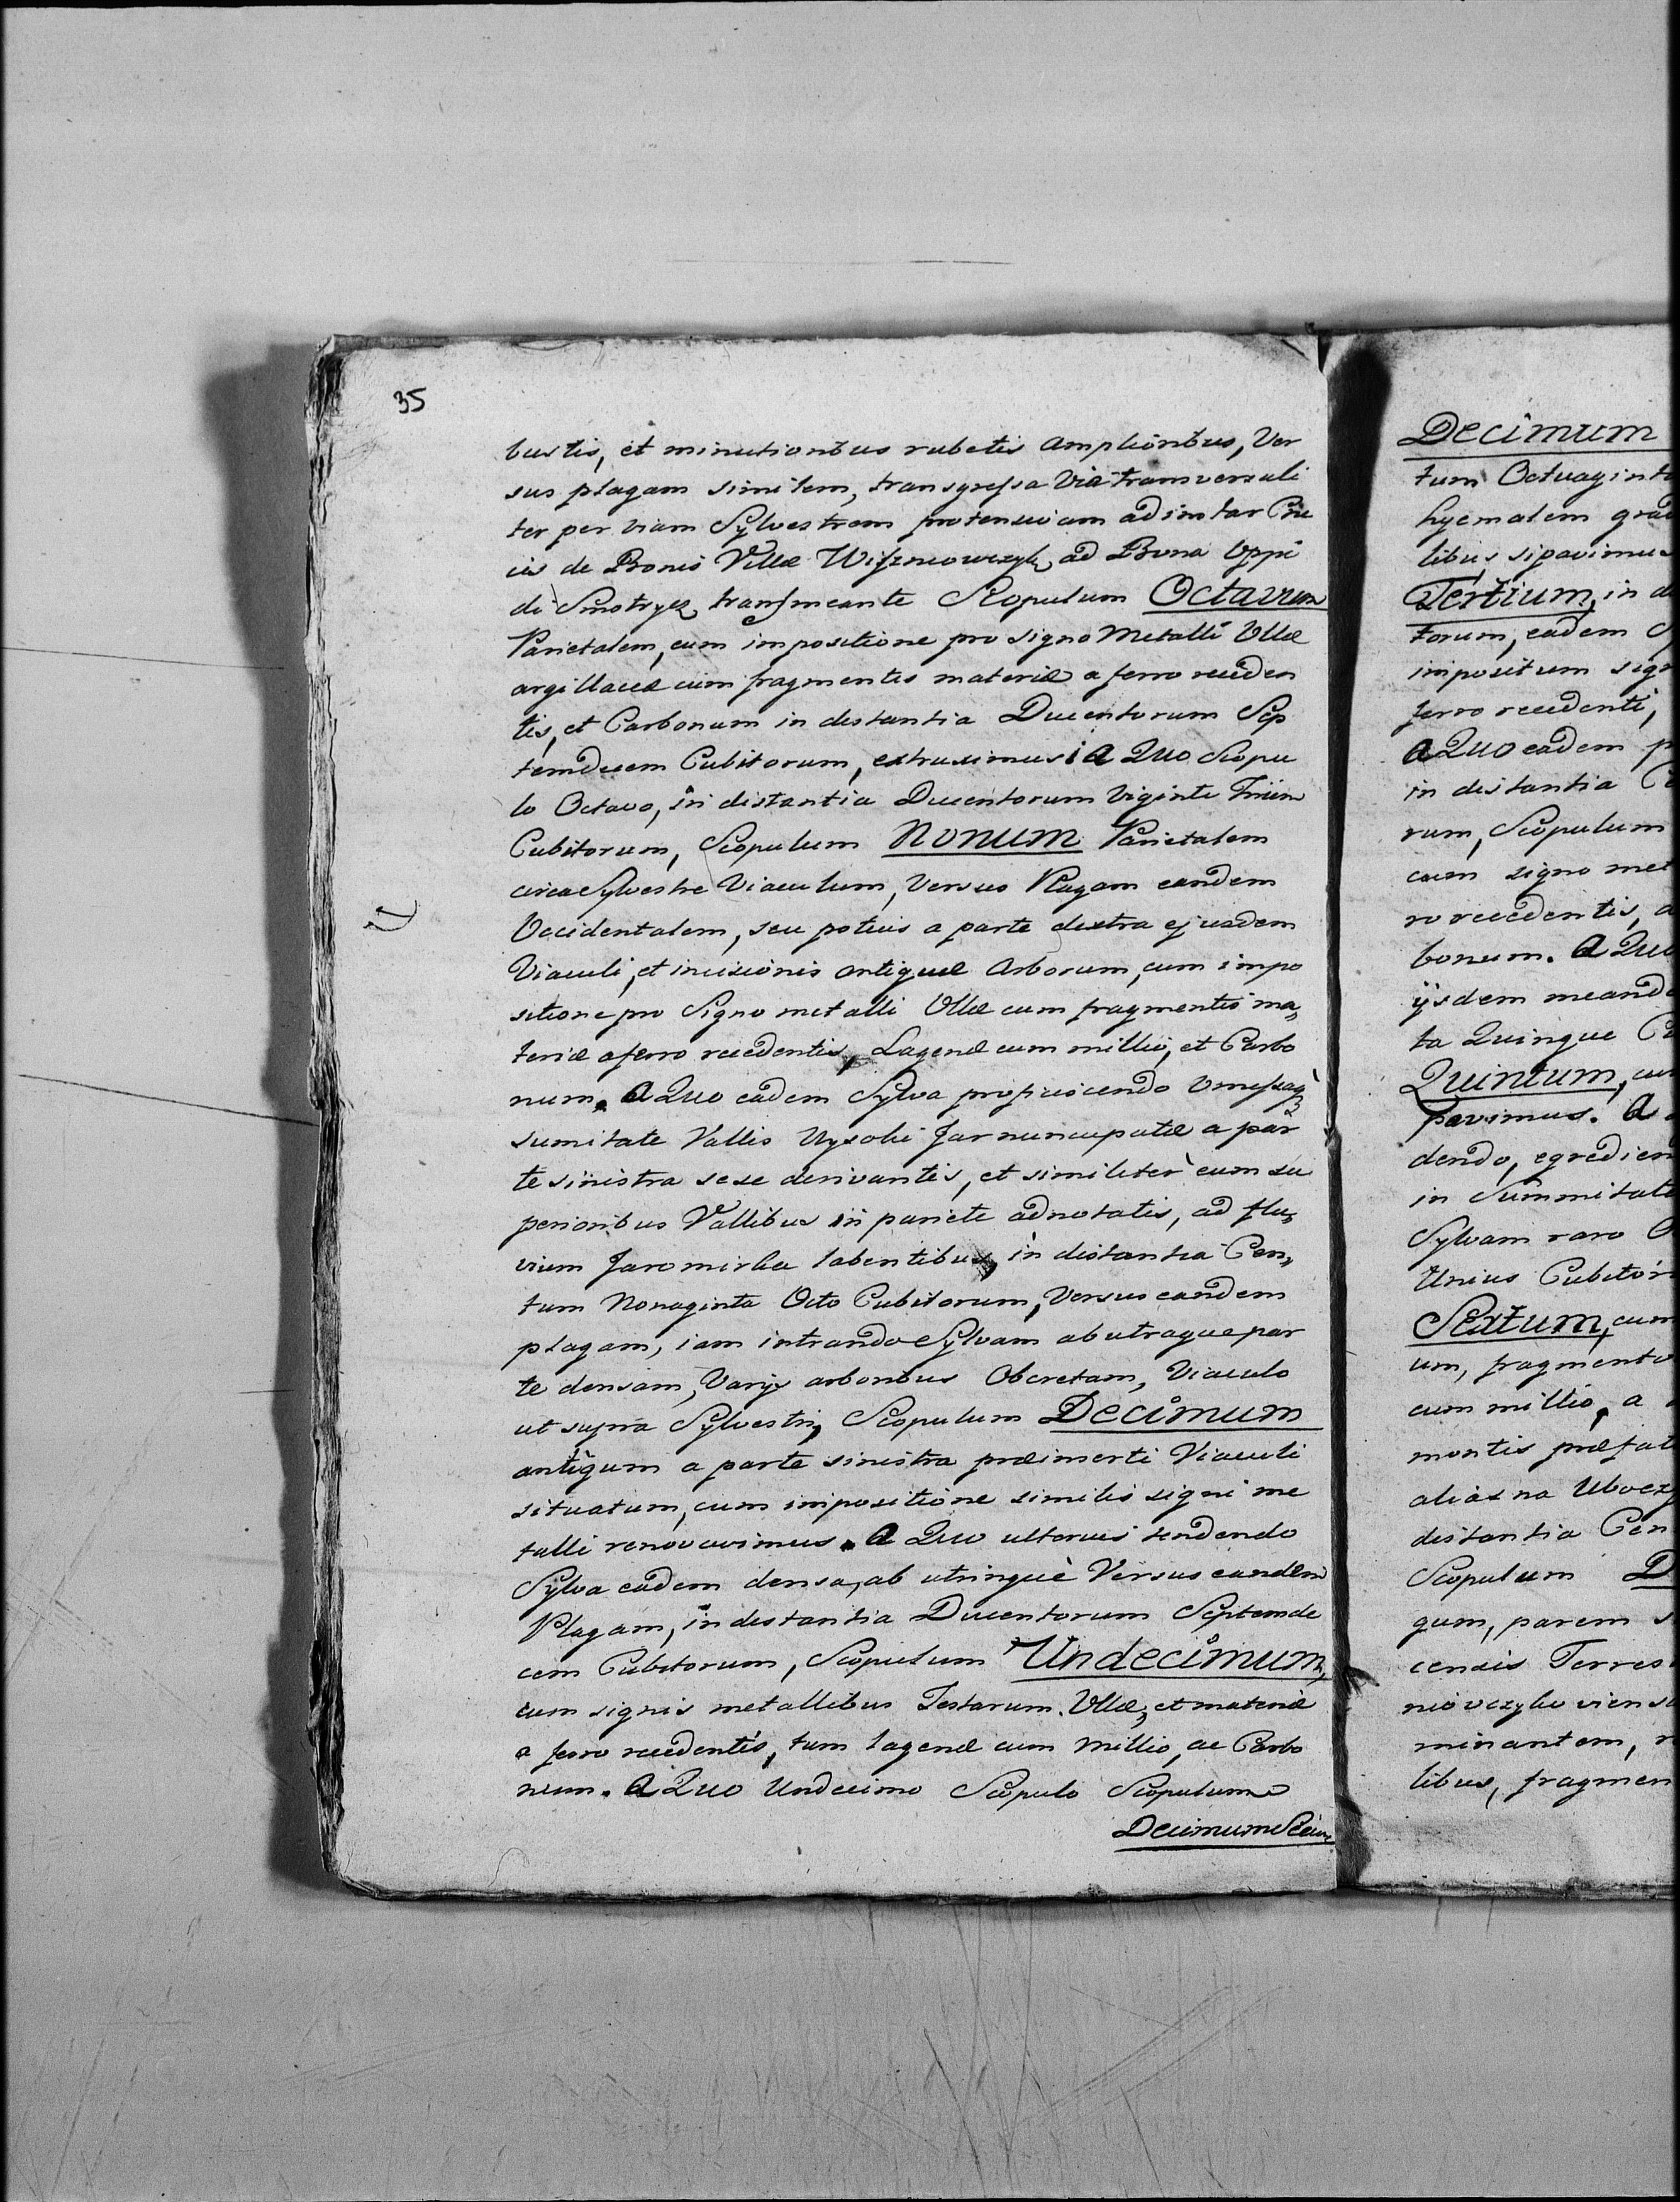 35
bustis, et minutionbus rubetis amplionbus, Ver
sus plagam similem, transgressa Via transversali
ter per viam Sylvestrem protensivam ad instar Cru
cis de Bonis Villæ Wiszniowczyk ad Bona Oppi
di Smotrycz transmeante Scopulum Octavum
Parietalem, cum impositione pro signo Metalli Ollæ
argillaceæ cum fragmentis materiæ a ferro receden
tis, et Carbonum in distantia Ducentorum Sep
temdecem Cubitorum, extruximus; A Quo Scopu
lo Octavo, in distantia Ducentorum Viginti Trium
Cubitorum, Scopulum Nonum Parietalem
circa Sylvestre Viaculum, Versus Plagam eandem
Occidentalem, seu potius a parte dextra ejusdem
Viaculi, et incisionis antiquæ Arborum, cum impo
sitione pro Signo metalli Ollæ cum fragmentis ma„
teriæ a ferro recedentis, Lagenæ cum millio, et Carbo
num. A Quo eadem Sylva proficiscendo
sumitate Vallis Wysoki Jar nuncupatæ a par
te sinistra sese derivantis, et similiter cum su
perioribus Vallibus in pariete adnotatis, ad flu„
vium Jaromirka labentibus, in distantia Cen„
tum Nonaginta Octo Cubitorum, Versus eandem
plagam, iam intrando Sylvam ab utraque par
te densam, Varijs arboribus Obcretam, Viaculo
ut supra Sylvestri, Scopulum Decimum
antiqum a parte sinistra præinserti Viaculi
situatum, cum impositione similis signi me
talli renovavimus. A Quo ulterius tendendo
Sylva eadem densa, ab utrinquè Versus eandem
Plagam, in distantia Ducentorum Septemde
cem Cubitorum, Scopulum Undecimum,
cum signis metallibus Testarum Ollæ, et materiæ
a ferro recedentis, tum lagenæ cum Millio, ac Carbo
num. A Quo Undecimo Scopulo Scopulum
Decimum Secun
Decimum
tum Octuagint
hyemalem grad
libus, sipavimus
Tertium, in d
torum, eadem S
impositum sign
ferro recedenti,
A Quo eadem p
in distantia C
rum, Scopulum
cum signo met
ro recedentis, a
bonum. A Quo
ijsdem meand
ta Quinque Cu
Quintum, cum
pavimus. A
dendo, egredien
in Summitate
Sylvam raro
Unius Cubitor
Sextum, cum
um, fragmento
cum millio, a
montis præfat
alias na Uboczy
distantia Cen
Scopulum D
qum, parem s
censis Terres
niovczykoviens
minantem, r
libus, fragmen